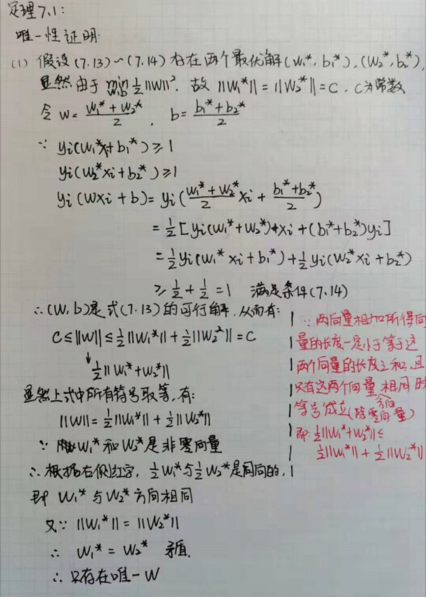 定理7.1:
唯一性证明:
(1) 假设(7.13)~(7.14)存在两个最优解(w₁*, b₁*), (w₂*, b₂*),
显然由于 min ½||w||², 故 ||w₁*|| = ||w₂*|| = C, C为常数
令 w = (w₁* + w₂*)/2 , b = (b₁* + b₂*)/2
∵ yi(w₁*x + b₁*) ≥ 1
yi(w₂*xi + b₂*) ≥ 1
yi(wxi + b) = yi((w₁* + w₂*)/2 xi + (b₁* + b₂*)/2)
= ½[yi(w₁* + w₂*)*xi + (b₁* + b₂*)yi]
= ½yi(w₁* xi + b₁*) + ½yi(w₂*xi + b₂*)
≥ ½ + ½ = 1 满足条件(7.14)
∴ (w, b)是式(7.13)的可行解, 从而有:
C ≤ ||w|| ≤ ½||w₁*|| + ½||w₂*|| = C
½||w₁* + w₂*||
显然上式中所有符号取等, 有:
||w|| = ½||w₁*|| + ½||w₂*||
∵ w₁* 和 w₂* 是非零向量
∴ 根据右侧边字, ½w₁*与½w₂*是同向的,
即 w₁* 与 w₂* 方向相同
又∵ ||w₁*|| = ||w₂*||
∴ w₁* = w₂* 矛盾.
∴ 只存在唯一 w
∵ 两向量相加所得向
量的长度一定小于等于这
两个向量的长度之和, 且
只有这两个向量方向相同时
等号成立(除零向量)
即 ½||w₁* + w₂*|| ≤
½||w₁*|| + ½||w₂*||